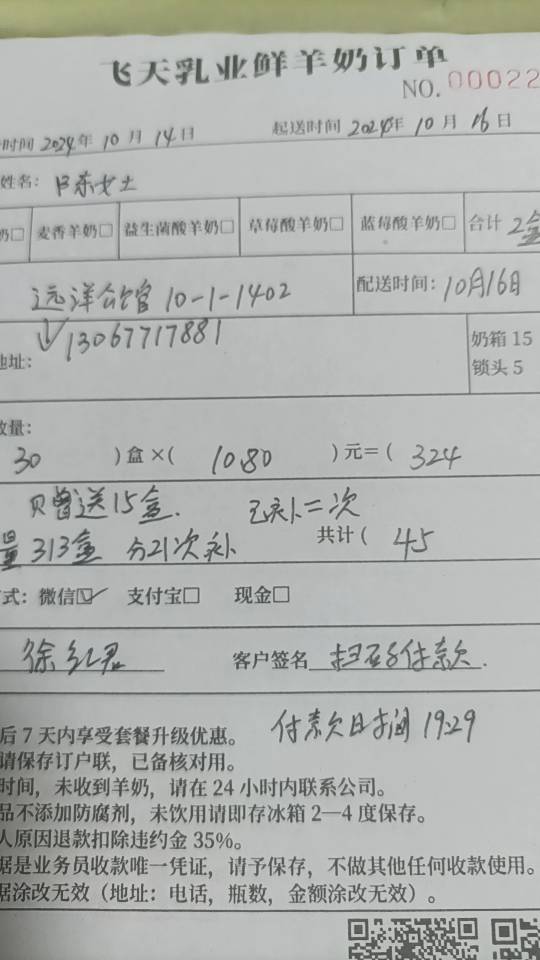 飞天乳业鲜羊奶订单
NO. 00022
时间 2024年 10 月 14 日 起送时间 2024年 10 月 16 日
姓名: 女士
奶□ 麦香羊奶□ 益生菌酸羊奶□ 草莓酸羊奶□ 蓝莓酸羊奶□ 合计 2盒
远洋公馆 10-1-1402 配送时间: 10月16日
13067717881
地址: 奶箱 15
锁头 5
数量:
30 )盒×( 10.80 )元=( 324
赠送15盒. 已补二次
量 313盒 分21次补 共计( 45
方式: 微信☑ 支付宝□ 现金□
徐红君 客户签名 扫码付款.
后 7 天内享受套餐升级优惠。 付款时间 19:29
请保存订户联，已备核对用。
时间，未收到羊奶，请在 24 小时内联系公司。
品不添加防腐剂，未饮用请即存冰箱 2—4 度保存。
人原因退款扣除违约金 35%。
据是业务员收款唯一凭证，请予保存，不做其他任何收款使用。
据涂改无效（地址：电话，瓶数，金额涂改无效）。